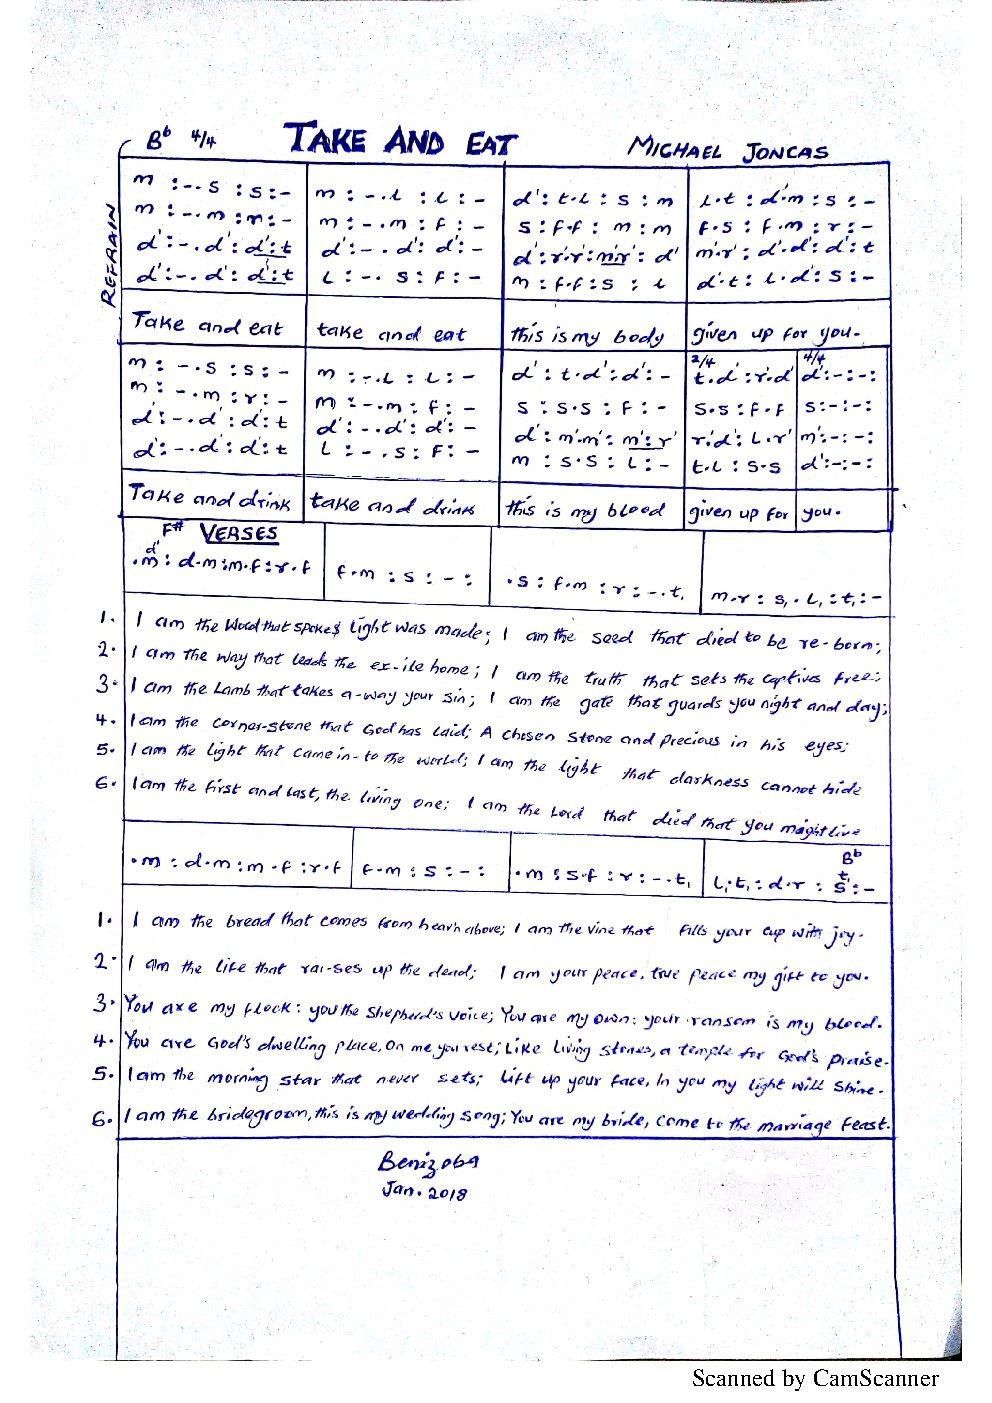 Bb 4/4 TAKE AND EAT MICHAEL JONCAS
REFRAIN
m :-.s :s :- | m :-.l :l :- | d' :t.l :s :m | l.t :d'.m :s :-
m :-.m :m :- | m :-.m :f :- | s :f.f :m :m | f.s :f.m :r :-
d' :-.d' :d' :t | d' :-.d' :d' :- | d' :r'.r' :m'.r' :d' | m'.r' :d'.d' :d' :t
d' :-.d' :d' :t | l :-.s :f :- | m :f.f :s :l | d'.t :l.d' :s :-
Take and eat | take and eat | this is my body | given up for you.
2/4 4/4
m :-.s :s :- | m :-.l :l :- | d' :t.d' :d' :- | t.d' :r'.d' | d' :- :- :
m :-.m :r :- | m :-.m :f :- | s :s.s :f :- | s.s :f.f | s :- :- :
d' :-.d' :d' :t | d' :-.d' :d' :- | d' :m'.m' :m' :r' | r'.d' :l.r' | m' :- :- :
d' :-.d' :d' :t | l :-.s :f :- | m :s.s :l :- | t.l :s.s | d' :- :- :
Take and drink | take and drink | this is my blood | given up for | you.
F# VERSES
d'
.m : d.m :m.f :r.f | f.m :s :- : | .s :f.m :r :-.t, | m.r :s,.l, :t, :-
1. I am the Word that spoke & light was made; I am the seed that died to be re-born;
2. I am the way that leads the ex-ile home; I am the truth that sets the captives free;
3. I am the Lamb that takes a-way your sin; I am the gate that guards you night and day;
4. I am the corner-stone that God has laid; A chosen stone and precious in his eyes;
5. I am the light that came in-to the world; I am the light that darkness cannot hide
6. I am the first and last, the living one; I am the Lord that died that you might live
Bb
.m :d.m :m.f :r.f | f.m :s :- : | .m :s.f :r :-.t, | l,.t, :d.r : t,s :-
1. I am the bread that comes from heav'n above; I am the vine that fills your cup with joy.
2. I am the life that rai-ses up the dead; I am your peace, true peace my gift to you.
3. You are my flock: you the Shepherd's voice; You are my own: your ransom is my blood.
4. You are God's dwelling place, on me you rest; Like living stones, a temple for God's praise.
5. I am the morning star that never sets; lift up your face, In you my light will shine.
6. I am the bridegroom, this is my wedding song; You are my bride, come to the marriage feast.
Benizoba
Jan. 2018
Scanned by CamScanner